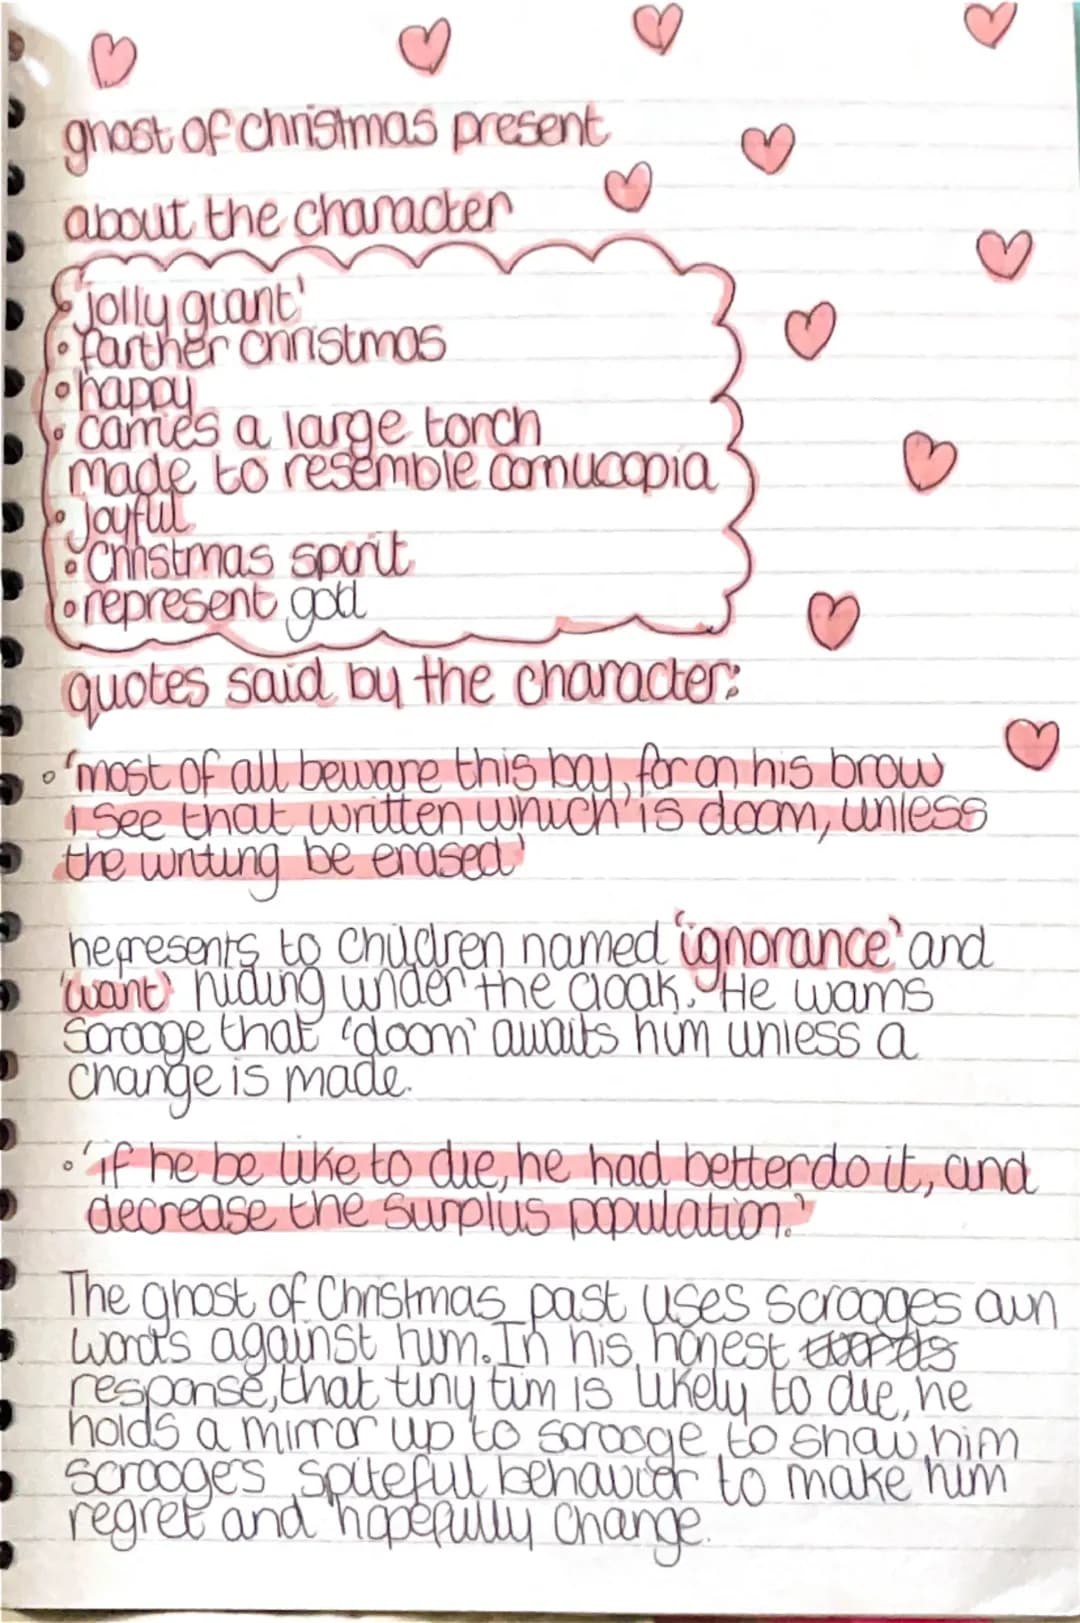 ghost of christmas present
about the character
• 'jolly giant'
• farther christmas
• happy
• carries a large torch
made to resemble cornucopia
• Joyful
• Christmas spirit
• represent god
quotes said by the character:
• 'most of all beware this boy, for on his brow
i see that written which is doom, unless
the writing be erased'
he presents to children named 'ignorance' and
'want' hiding under the cloak. He warns
Scrooge that 'doom' awaits him unless a
change is made.
• 'if he be like to die, he had better do it, and
decrease the surplus population.'
The ghost of Christmas past uses scrooges own
words against him. In his honest words
response, that tiny tim is likely to die, he
holds a mirror up to scrooge to show him
scrooges spiteful behavior to make him
regret and hopefully change.